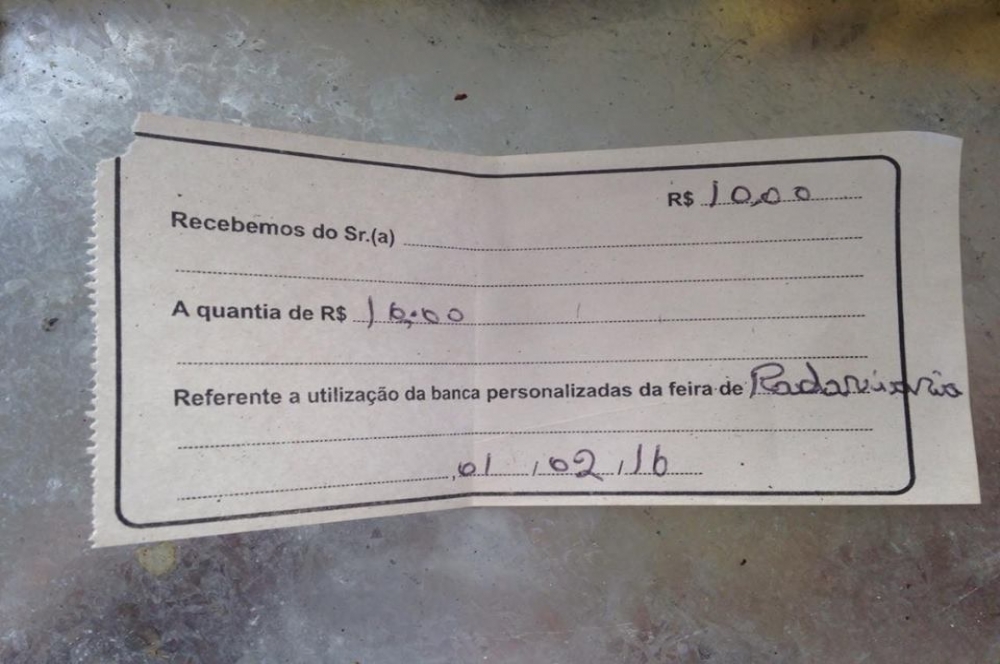 R$ 10,00
Recebemos do Sr.(a)
A quantia de R$ 10,00
Referente a utilização da banca personalizadas da feira de
, 01 / 02 / 16